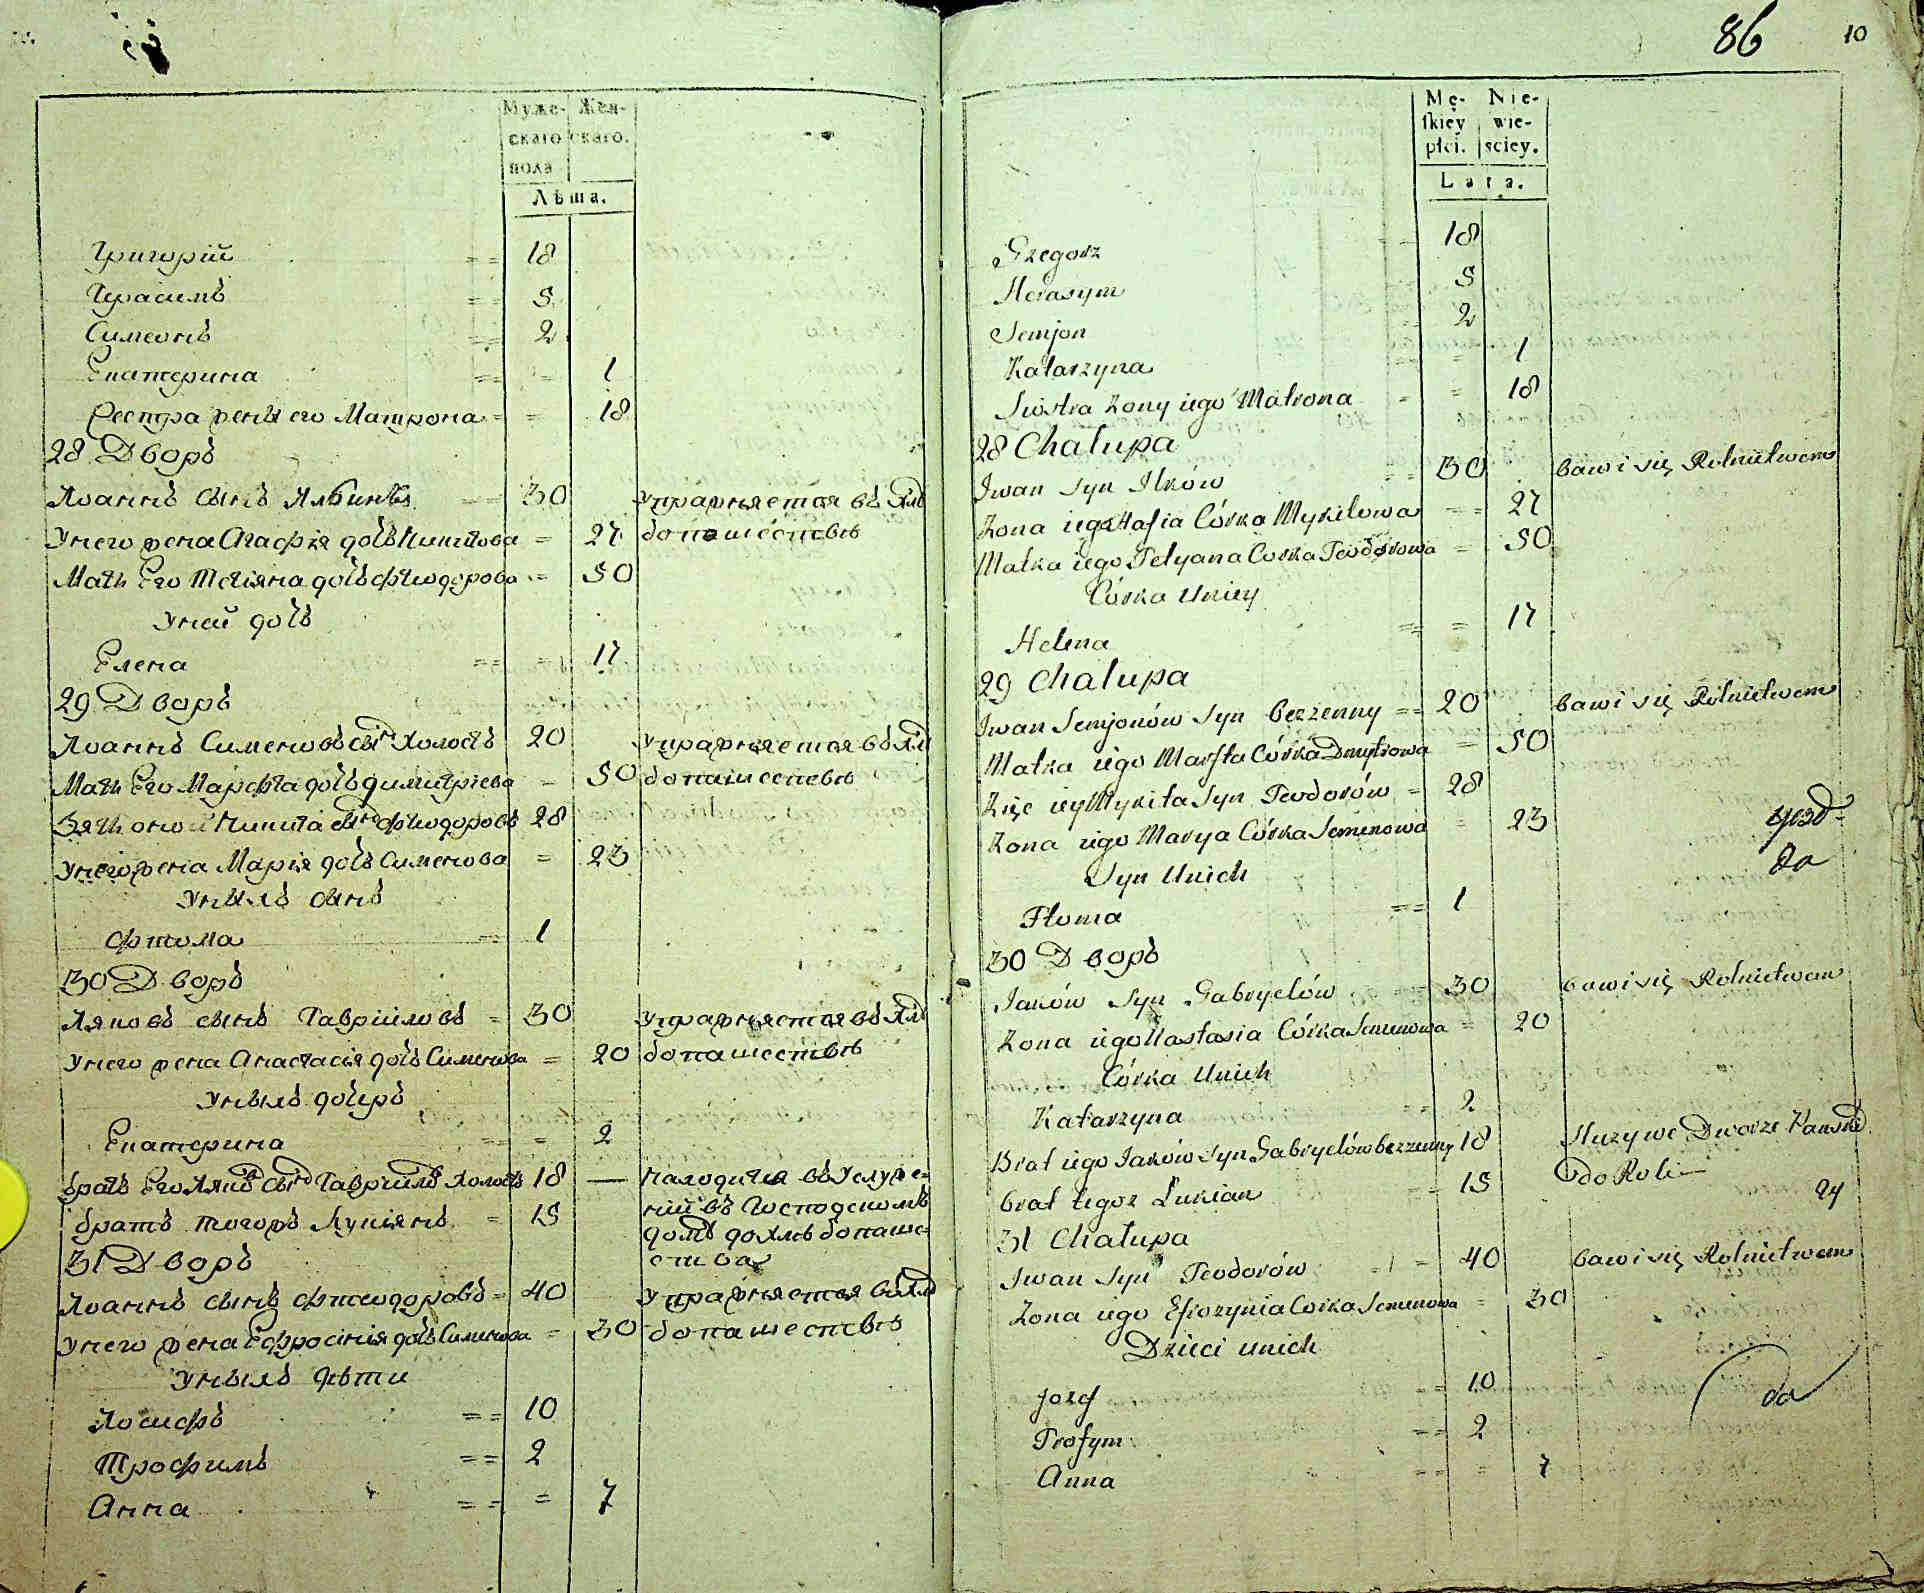 Муже- Жен-
скаго скаго.
пола
Лѣта.
Григорій == 18
Герасимъ == 5
Симеонъ == 2
Екатерина == = 1
Сестра жены его Матрона = = 18
28 Дворъ
Иоаннъ сынъ == 30 Упражняется въ хлѣ
У него жена Агафия дочь Никитова = 27 бопашествѣ
Мати Его Татіяна дочь Фтеодорова = 50
У ней дочь
Елена == = 17
29 Дворъ
Иоаннъ Сименовъ сынъ Холостъ 20 Упражняется въ хлѣ
Мати Его Марфта дочь Димитріева = 50 бопашествѣ
Зять оной Никита сынъ Фтеодоровъ 28
У него жена Марія дочь Сименова = 23
У нихъ сынъ
Фтома = 1
30 Дворъ
Ияковъ сынъ Гавріиловъ = 30 Упражняется въ хлѣ
У него жена Анастасія дочь Сименова = 20 бопашествѣ
У нихъ дочерь
Екатерина == = 2
братъ Его Иякъ сынъ Гавріилъ Холостъ 18 — Находится въ Услуже-
братъ тогожъ Лукіянъ = 15 ніи въ Господскомъ
домѣ до хлѣбопаше-
31 Дворъ
ства
Иоаннъ сынъ Фтеодоровъ = 40 Упражняется въ хлѣ
У него жена Ефросинія дочь Сименова = 30 бопашествѣ
У нихъ дѣти
Иосифъ == 10
Трофимъ == 2
Анна == = 7
86 10
Mę- Nie-
skiey wie-
płci. sciey.
Lata.
Grzegorz == 18
Herasym 5
Semjon 2
Katarzyna = 1
Siostra Zony iego Matrona - = 18
28 Chałupa
Iwan Syn Ilków == 30 bawi się Rolnictwem
Zona iego Hafia Córka Mykitowa == 27
Matka iego Tetyana Corka Teodorowa = 50
Córka Uniey
Helena == = 17
29 Chałupa
Iwan Semjonów Syn bezzenny == 20 bawi się Rolnictwem
Matka iego Marfta Córka Dmytrowa = 50
Zięc iey Mykita Syn Teodorów = 28
Zona iego Marya Córka Semenowa = 23
Syn Unich
Ftoma == 1
da
30 Дворъ
Jaków Syn Gabryelów == 30 bawi się Rolnictwem
Zona iego Nastasia Córka Semenowa = 20
Córka Unich
Katarzyna == 2
Brat iego Jaków Syn Gabryelów bezzenny 18 Słuzy we Dworze Panskim
brat tegoz Łukian == 15 do Roli
31 Chałupa
Iwan Syn Teodorów = 40 bawi się Rolnictwem
Zona iego Efrozynia Corka Semenowa = 30
Dzieci unich
Jozef == 10
da
Trofym == 2
Anna == = 7